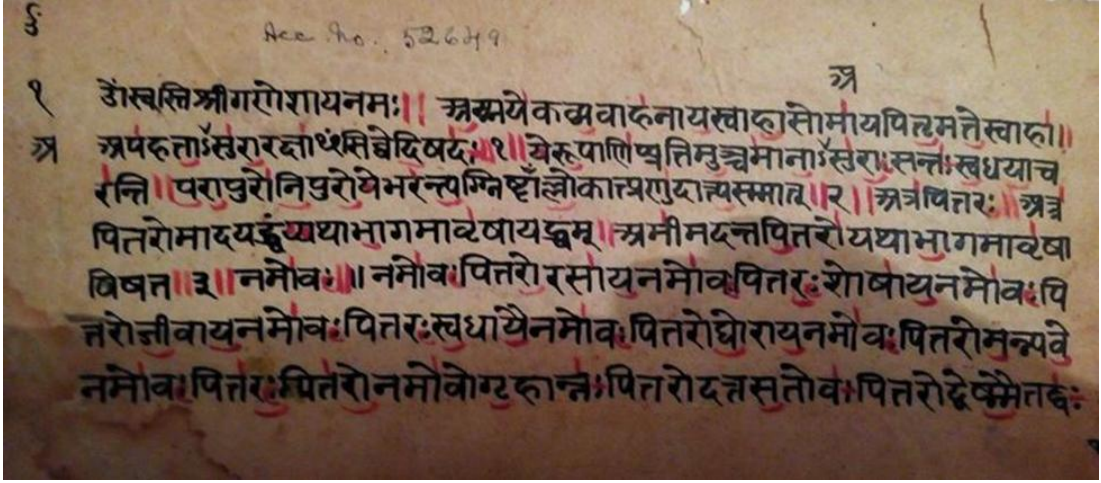 Acc. No. 52649
अ
१ ॐस्वस्तिश्रीगणेशायनमः॥ अग्नयेकव्यवाहनायस्वाहासोमायपितृमतेस्वाहा॥
अ अपहताऽसुरारक्षाᳪसिवेदिषदः॥१॥येरूपाणिप्प्रतिमुञ्चमानाऽसुराःसन्तःस्वधयाच
रन्ति॥परापुरोनिपुरोयेभरन्त्यग्निष्टाँल्लोकात्प्रणुदात्यस्मात्॥२॥अत्रपितरः॥अत्र
पितरोमादयद्ध्वंय्यथाभागमावृषायद्ध्वम्॥अमीमदन्तपितरोयथाभागमावृषा
यिषत॥३॥नमोवः॥नमोवःपितरोरसायनमोवःपितरःशोषायनमोवःपि
तरोजीवायनमोवःपितरःस्वधायैनमोवःपितरोघोरायनमोवःपितरोमन्यवे
नमोवःपितरःपितरोनमोवोगृहान्नःपितरोदत्तसतोवःपितरोद्देष्म्मैतद्वः